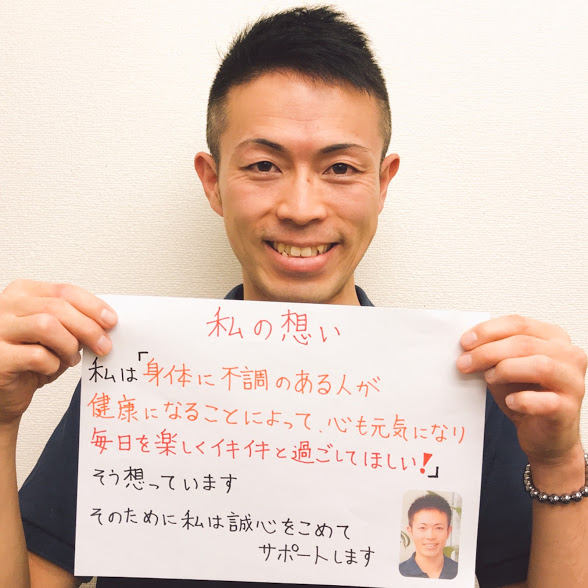 私の想い
私は「身体に不調のある人が
健康になることによって、心も元気になり
毎日を楽しくイキイキと過ごしてほしい!」
そう想っています
そのために私は誠心をこめて
サポートします